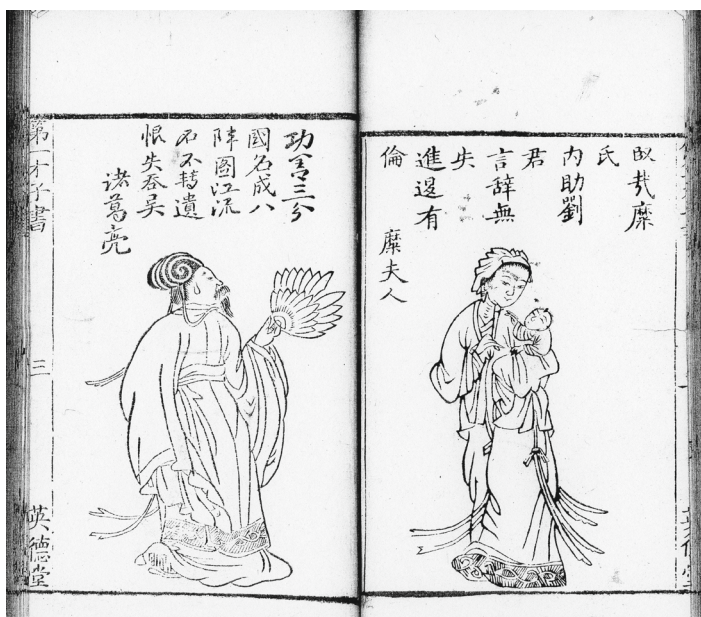 臤㢤糜
氏
內助劉
君
言辭無
失
進退有
倫
糜夫人
功盖三分
國名成八
陣圖江流
石不轉遺
恨失吞吳
諸葛亮
第才子書
三
英德堂